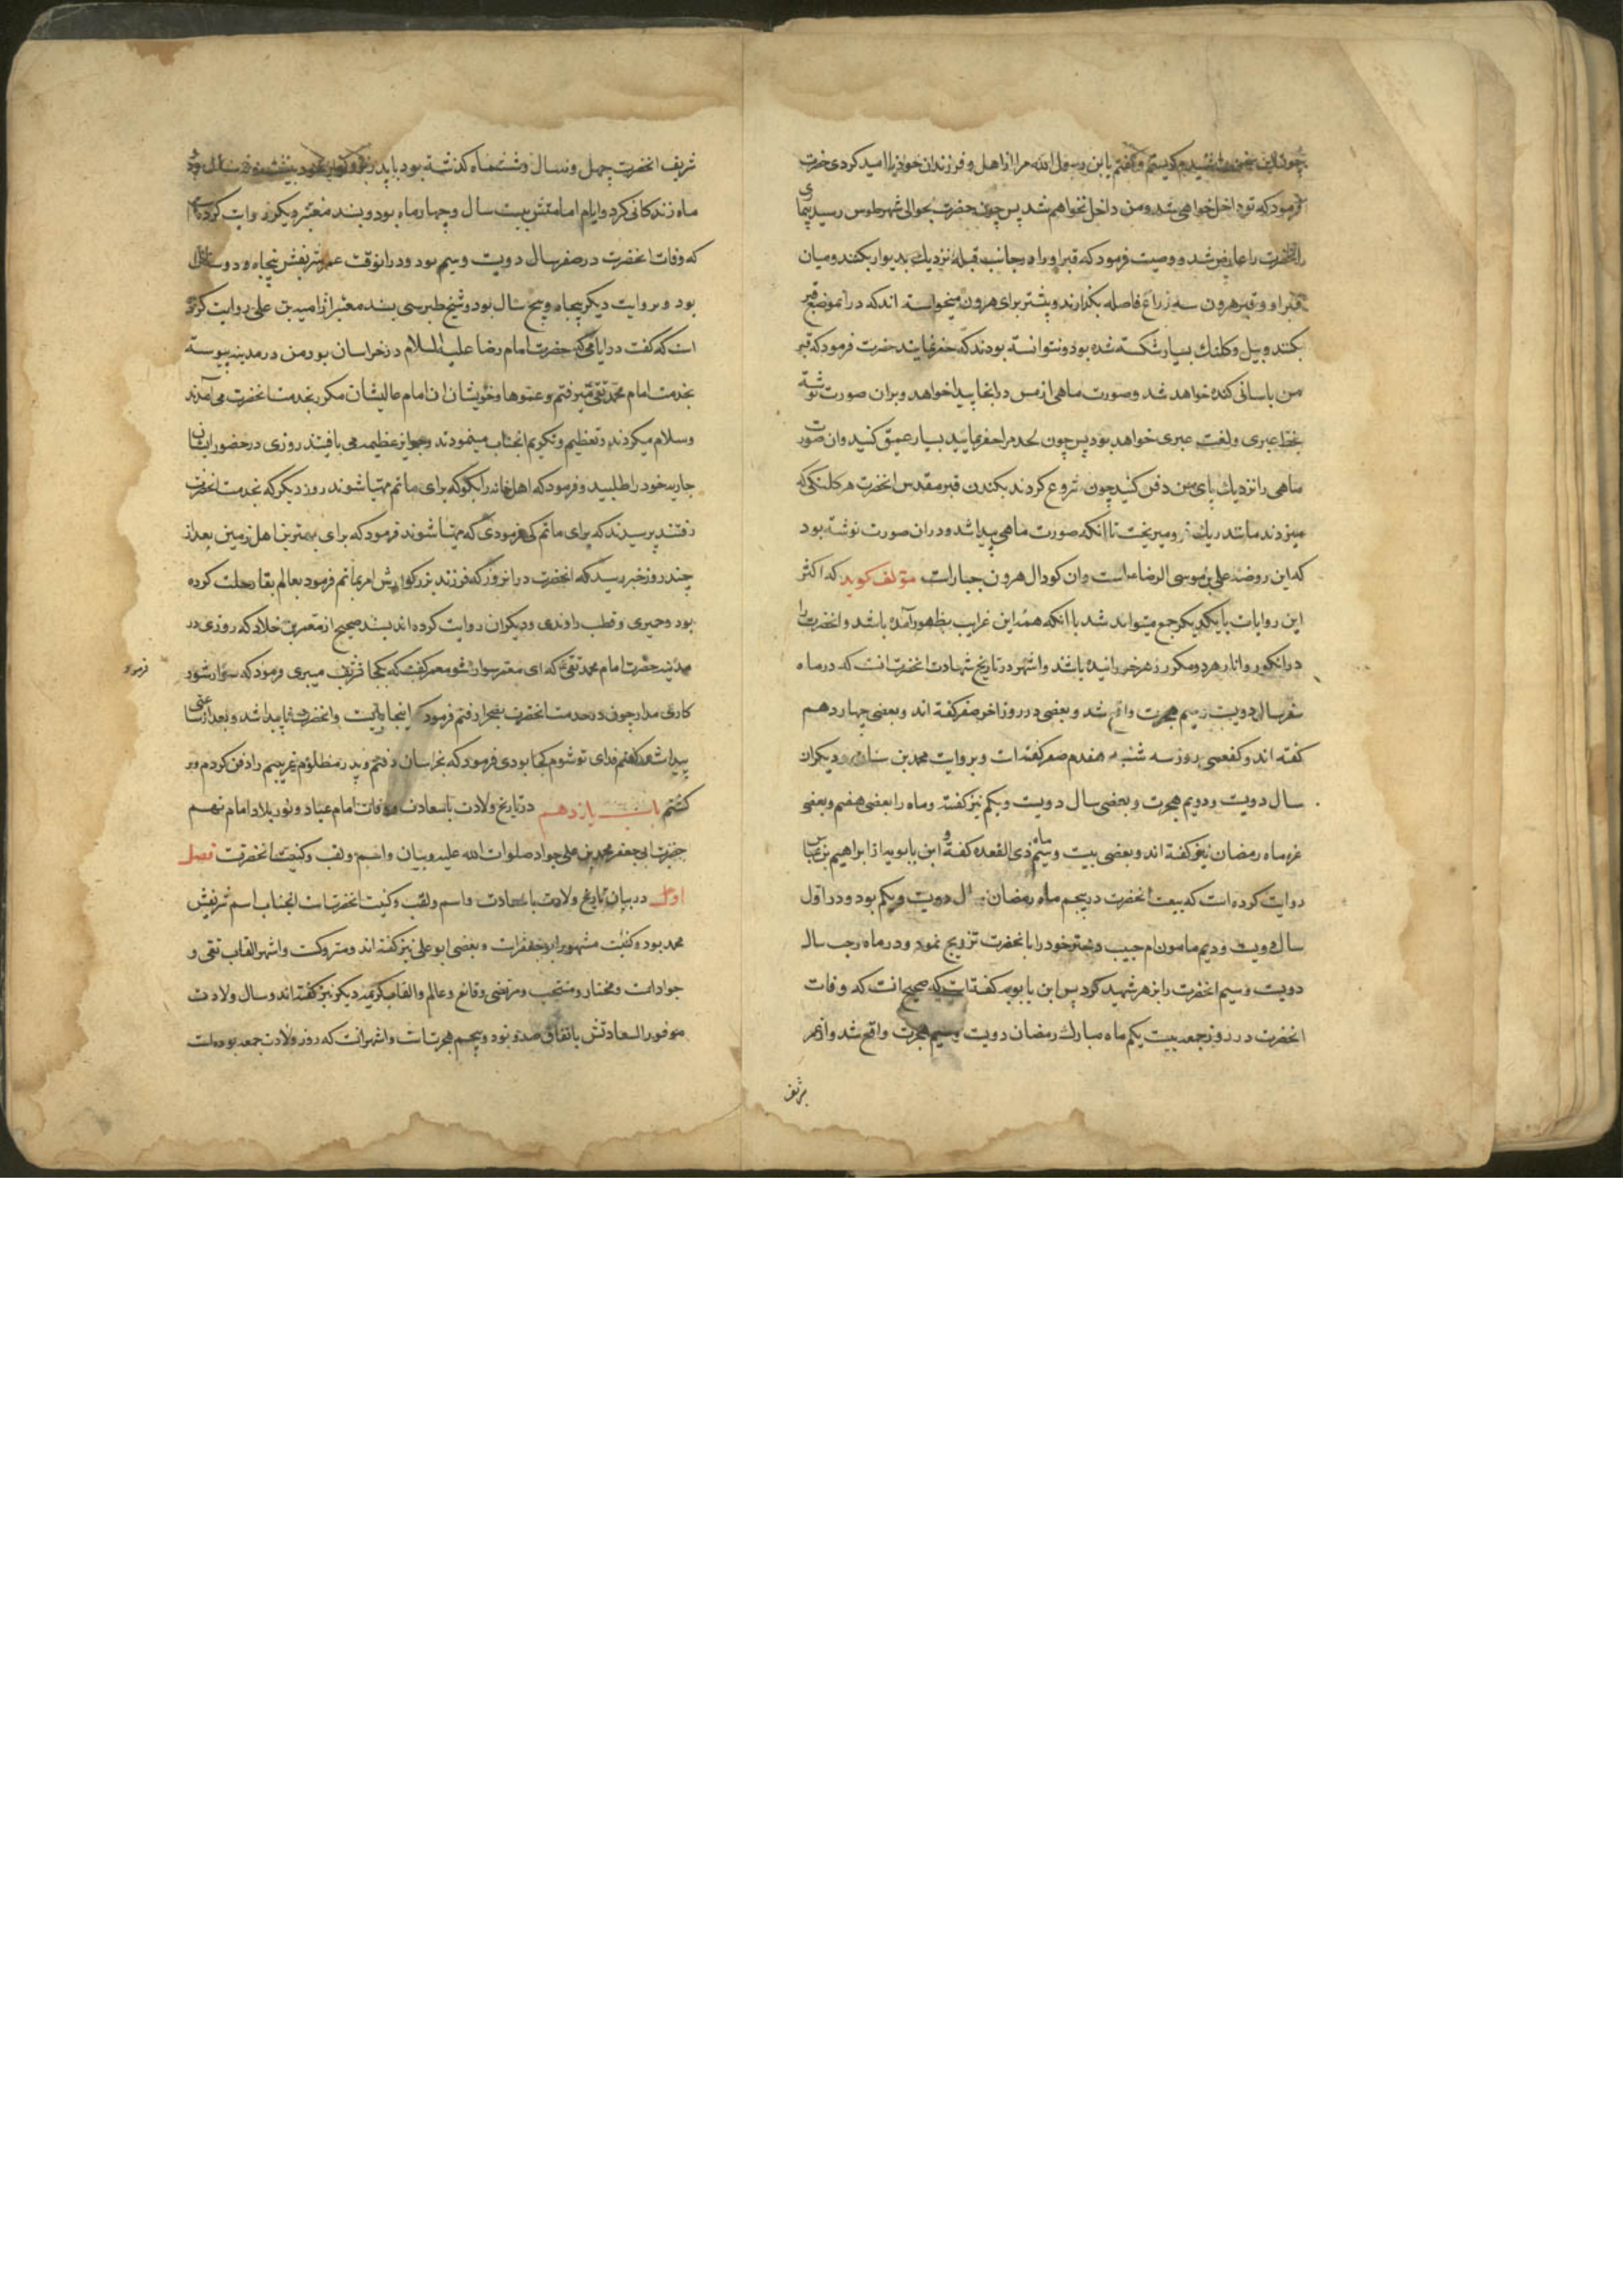 چون این سخن را شنیدم گریستم و گفتم یا بن رسول الله مرا از اهل و فرزندان خود ناامید کردی حضرت
فرمود که تو داخل خواهی شد و من داخل نخواهم شد پس چون حضرت بحوالی شهر طوس رسید بیماری
آنحضرت را عارض شد و وصیت فرمود که قبر او را در جانب قبله نزدیك بدیوار بکنند و میان
قبر او و قبر هرون سه زراع فاصله بگذارند و پیشتر برای هرون میخواسته اند که در آنموضع قبر
بکنند و بیل و کلنك بسیار شکسته شده بود و نتوانسته بودند که حفر نمایند حضرت فرمود که قبر
من باسانی کنده خواهد شد و صورت ماهی از مس در انجا پیدا خواهد و بران صورت نوشته
بخط عبری و لغت عبری خواهد بود پس چون لحد مرا حفر نمایید بسیار عمیق کنید و ان صورت
ماهی را نزدیك پای من دفن کنید چون شروع کردند بکندن قبر مقدس انحضرت هر کلنکی که
میزدند مانند ریك فرو میریخت تا انکه صورت ماهی پیدا شد و در ان صورت نوشته بود
که این روضه علی بن موسی الرضا است و ان کودال هرون جبار است مؤلف کوید که اکثر
این روایات با یکدیکر جمع میتواند شد با انکه همه این غرایب بظهور آمده باشد و انحضرت را
در انکور و انار هر دو مکرر زهر خورانیده باشند و اشهر در تاریخ شهادت انحضرت انست که در ماه
صفر سال دویست و سیم هجرت واقع شد و بعضی در روز اخر صفر کفته اند و بعضی چهاردهم
کفته اند و کفعمی روز سه شنبه هفدهم صفر کفته است و بروایت محمد بن سنان و دیکران
سال دویست و دویم هجرت و بعضی سال دویست و یکم نیز کفته و ماه را بعضی هفتم و بعضی
غره ماه رمضان نیز کفته اند و بعضی بیست و سیم ماه ذی القعده کفته و ابن بابویه از ابراهیم بن عباس
روایت کرده است که بیعت انحضرت در پنجم ماه رمضان سال دویست و یکم بود و در اول
سال دویست و دیم مامون ام حبیب دختر خود را بانحضرت تزویج نمود و در ماه رجب سال
دویست و سیم انحضرت را بزهر شهید کرد پس ابن بابویه کفته است که صحیح انست که وفات
انحضرت در روز جمعه بیست یکم ماه مبارك رمضان دویست و سیم هجرت واقع شد و از عمر
شریف
شریف انحضرت چهل و نه سال و شش ماه کذشته بود با پدر بزرکوار خود بیست و نه سال و دو
ماه زندکانی کرد و ایام امامتش بیست سال و چهار ماه بود و بسند معتبر دیکر روایت کرده است
که وفات انحضرت در صفر سال دویست و سیم بود و در انوقت عمر شریفش پنجاه و دو سال
بود و بروایت دیکر پنجاه و پنج سال بود و شیخ طبرسی بسند معتبر از امیه بن علی روایت کرده
است که گفت در ایامی که حضرت امام رضا علیه السلام در خراسان بود من در مدینه پیوسته
بخدمت امام محمد تقی میرفتم و عموها و خویشان ان امام عالیشان مکرر بخدمت انحضرت می آمدند
و سلام میکردند و تعظیم و تکریم انجناب مینمودند و جوایز عظیمه می یافتند روزی در حضور ایشان
جاریه خود را طلبید و فرمود که اهل خانه را بکو که برای ماتم مهیا شوند روز دیکر که بخدمت انحضرت
رفتند پرسیدند که برای ماتم کی فرمودی که مهیا شوند فرمود که برای بهترین اهل زمین بعد از
چند روز خبر رسید که انحضرت در انروز که فرزند بزرکوارش امر بماتم فرمود بعالم بقا رحلت کرده
بود و حیری و قطب راوندی و دیکران روایت کرده اند بسند صحیح از معمر بن خلاد که روزی در
مدینه حضرت امام محمد تقی که ای معمر سوار شو معمر کفت که بکجا تشریف میبری فرمود که سوار شو و
فرمود
کاری مدار چون در خدمت انحضرت بصحرا رفتم فرمود که اینجا بایست و انحضرت ناپیدا شد و بعد از ساعتی
پیدا شد کفتم فدای تو شوم کجا بودی فرمود که بخراسان رفتم و پدر مظلوم غریبم را دفن کردم و بر
کشتم باب یازدهم در تاریخ ولادت باسعادت و وفات امام عباد و نور بلاد امام نهم
حضرت ابی جعفر محمد بن علی جواد صلوات الله علیه و بیان و اسم و لقب و کنیت انحضرت فصل
اول در بیان تاریخ ولادت باسعادت و اسم و لقب و کنیت انحضرتست انجناب اسم شریفش
محمد بود و کنیت مشهور ابو جعفر است و بعضی ابو علی نیز کفته اند و متروکست و اشهر القاب تقی و
جوادست و مختار و منتجب و مرتضی و قانع و عالم و القاب کریمه دیکر نیز کفته اند و سال ولادت
موفور السعادتش باتفاق صد و نود و پنجم هجرتست و اشهر انست که روز ولادت جمعه بوده است